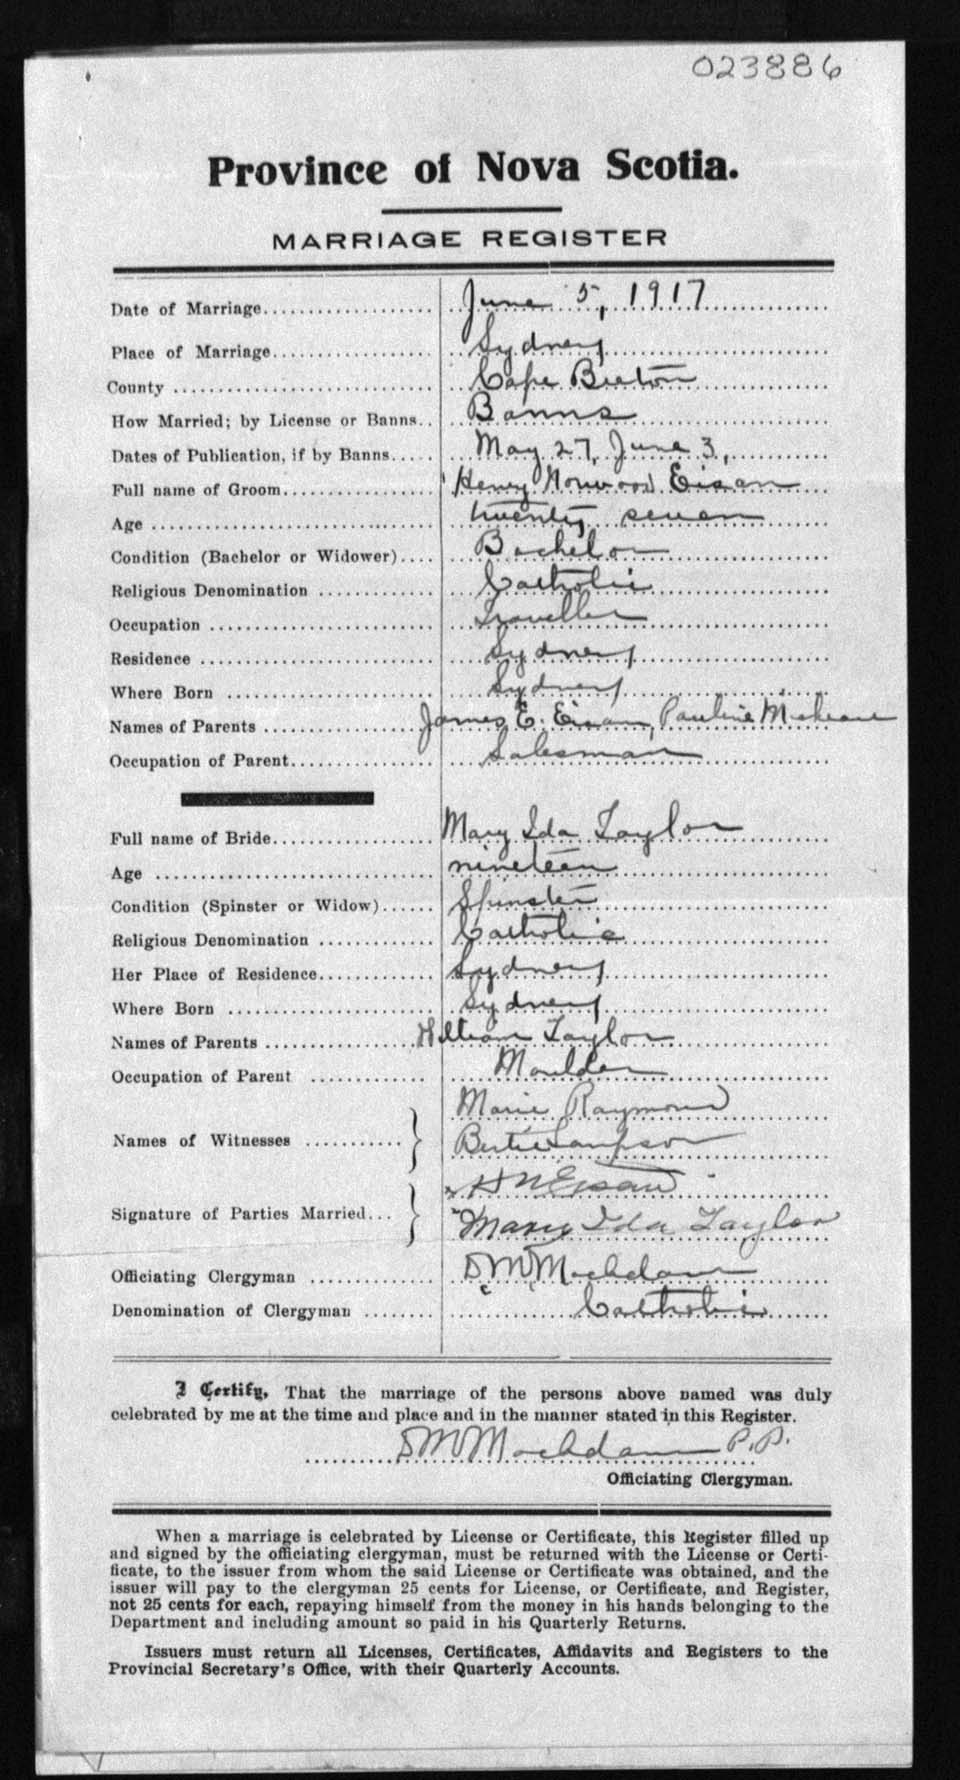 023886
Province of Nova Scotia.
MARRIAGE REGISTER
Date of Marriage June 5, 1917
Place of Marriage Sydney
County Cape Breton
How Married; by License or Banns Banns
Dates of Publication, if by Banns May 27, June 3,
Full name of Groom Henry Norwood Eisan
Age twenty seven
Condition (Bachelor or Widower) Bachelor
Religious Denomination Catholic
Occupation Traveller
Residence Sydney
Where Born Sydney
Names of Parents James E. Eisan, Pauline
Occupation of Parent Salesman
Full name of Bride Mary Ida Taylor
Age nineteen
Condition (Spinster or Widow) Spinster
Religious Denomination Catholic
Her Place of Residence Sydney
Where Born Sydney
Names of Parents William Taylor
Occupation of Parent Moulder
Marie Raymond
Names of Witnesses Bertie Sampson
H N Eisan
Signature of Parties Married Mary Ida Taylor
Officiating Clergyman
Denomination of Clergyman Catholic
I Certify, That the marriage of the persons above named was duly
celebrated by me at the time and place and in the manner stated in this Register.
P.P.
Officiating Clergyman.
When a marriage is celebrated by License or Certificate, this Register filled up
and signed by the officiating clergyman, must be returned with the License or Certi-
ficate, to the issuer from whom the said License or Certificate was obtained, and the
issuer will pay to the clergyman 25 cents for License, or Certificate, and Register,
not 25 cents for each, repaying himself from the money in his hands belonging to the
Department and including amount so paid in his Quarterly Returns.
Issuers must return all Licenses, Certificates, Affidavits and Registers to the
Provincial Secretary's Office, with their Quarterly Accounts.